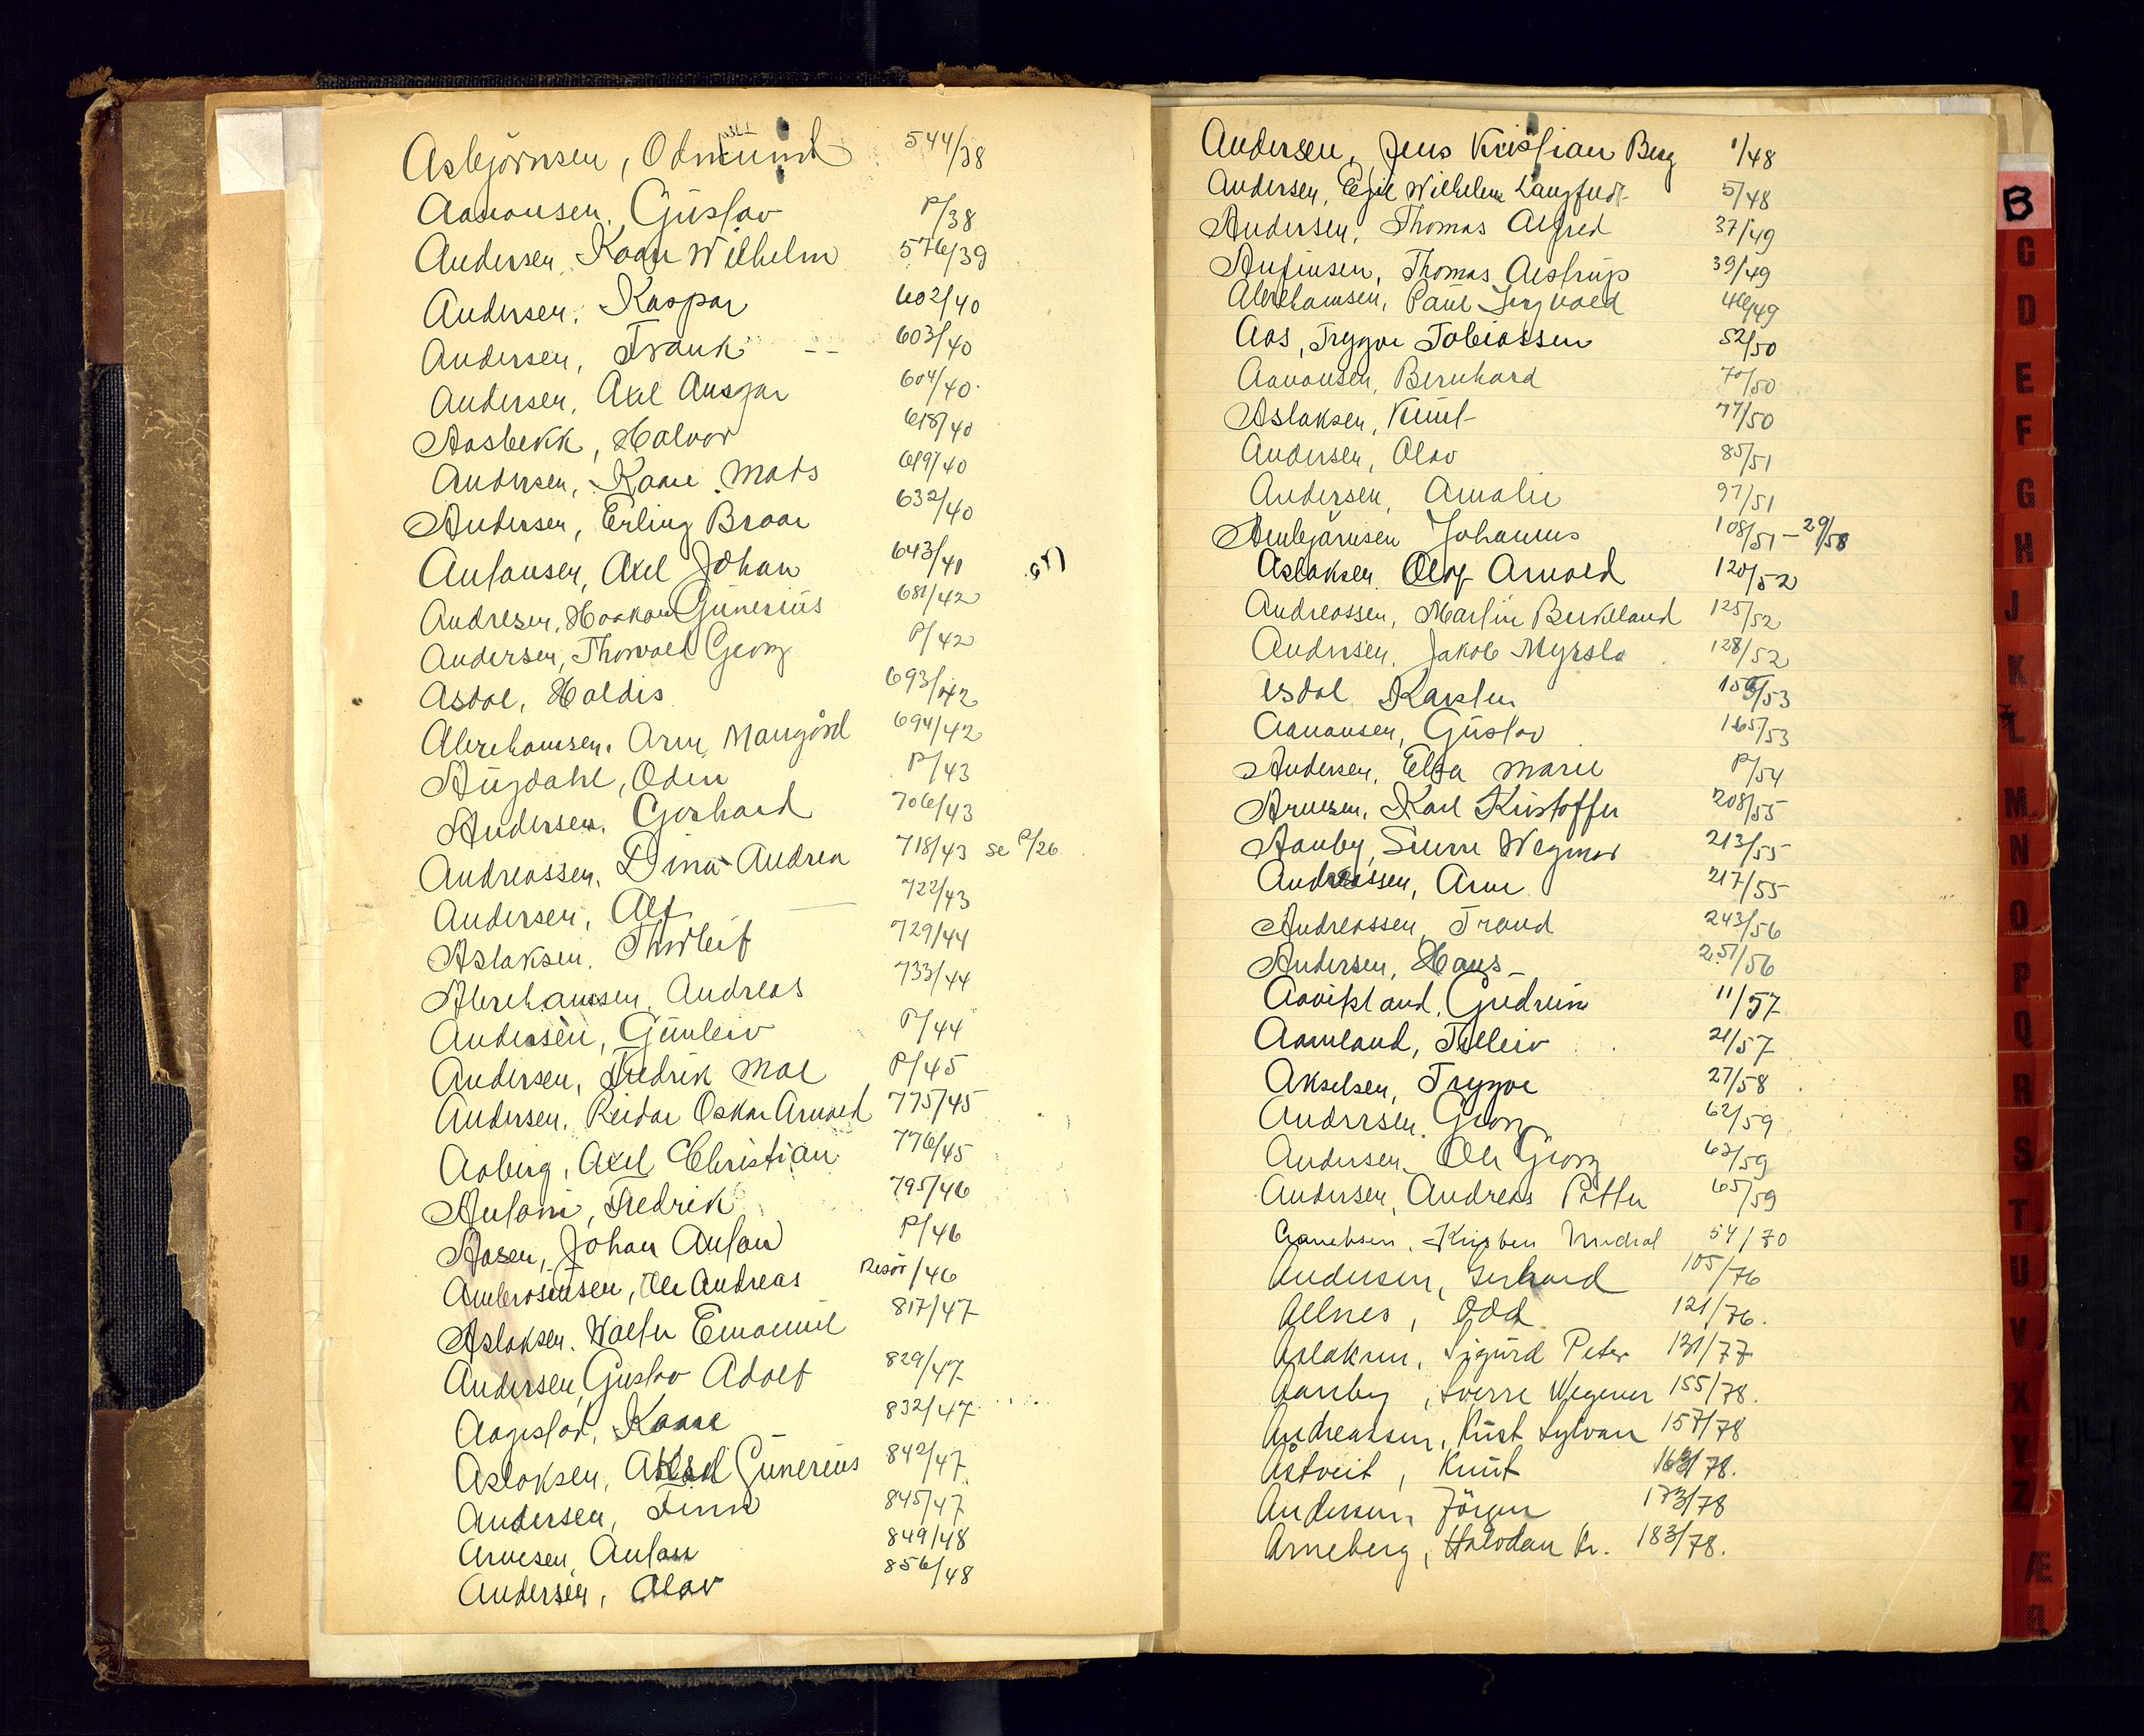 Asbjörnsen, Odmund 544/38
Aanonsen, Gustav P/38
Andersen, Kaare Wilhelm 576/39
Andersen, Kaspar 602/40
Andersen, Frank 603/40
Andersen, Axel Ansgar 604/40
Aasbekk, Halvor 618/40
Andersen, Kaare Mats 619/40
Andersen, Erling Braar 632/40
Antonsen, Axel Johan 643/41
Andresen, Haakon Gunerius 681/42
Andersen, Thorvald Georg P/42
Asdal, Haldis 693/42
Abrehamsen, Arne Mangård 694/42
Augdahl, Odin P/43
Andersen, Gerhard 706/43
Andreassen, Dina Andrea 718/43 se P/26
Andersen, Alf 722/43
Aslaksen, Thorleif 729/44
Abrehamsen, Andreas 733/44
Andersen, Gunleiv P/44
Andersen, Fredrik Moe P/45
Andersen, Reidar Oskar Arnold 775/45
Aaberg, Axel Christian 776/45
Antoni, Fredrik 795/46
Aasen, Johan Anton P/46
Ambrosiussen, Ole Andreas Risör/46
Aslaksen, Walter Emanuel 817/47
Andersen, Gustav Adolf 829/47
Aagestad, Kaare 832/47
Aslaksen, Aksel Gunerius 842/47
Andersen, Finn 845/47
Arnesen, Anton 849/48
Andersen, Olav 856/48
Andersen, Jens Kristian Berg 1/48
Andersen, Egil Wilhelm Langfeldt 5/48
Andersen, Thomas Alfred 37/49
Anfinsen, Thomas Aestrup 39/49
Abrehamsen, Paul Ingvald 46/49
Aas, Trygve Tobiassen 52/50
Aanonsen, Bernhard 70/50
Aslaksen, Knut 77/50
Andersen, Olav 85/51
Andersen, Amalie 97/51
Arnbjørnsen Johannes 108/51 - 29/58
Aslaksen Olaf Arnold 120/52
Andreassen, Martin Berkeland 125/52
Andersen, Jakob Myrstø 128/52
Asdal Karsten /53
Aanonsen, Gustav 165/53
Andersen, Elsa Marie P/54
Arnesen, Karl Kristoffer 208/55
Aanby, Sverre Wegner 213/55
Andreassen, Arne 217/55
Andreassen, Trond 243/56
Andersen, Hans 257/56
Aavikland, Gudrun 11/57
Aamland, Tølleiv 21/57
Akselsen, Trygve 27/58
Andersen, Georg 62/59
Andersen, Ole Georg 63/59
Andersen, Andreas Petter 65/59
54/70
Andersen, Gerhard 105/76
Allnes, Odd 121/76.
Aslaksen, Sigurd Peter 131/77
Aanby, Sverre Wegener 155/78.
Andreassen, Knut Sylvan 157/78
Åstveit, Knut /78.
Andersen, Jörgen 173/78
Arneberg, Halvdan Kr. 183/78.
B
C
D
E
F
G
H
J
K
L
M
N
O
P
Q
R
S
T
U
V
X
Y
Z
Æ